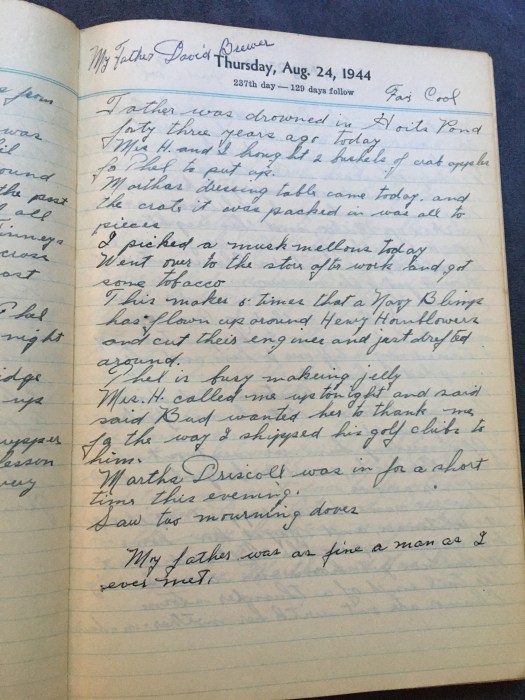 My Father David Brewer
Thursday, Aug. 24, 1944
237th day — 129 days follow
Fair Cool
Father was drowned in Hoits Pond
forty three years ago today
Mrs H. and I bought 2 bushels of crab apples
for Phel to put up.
Marthas dressing table came today, and
the crate it was packed in was all to
pieces
I picked a musk mellons today
Went over to the stor after work and got
some tobacco
This makes 6 times that a Navy Blimp
has flown up around Henry Hornblowers
and cut their engines and just drifted
around.
Phel is busy makeing jelly
Mrs. H. called me up tonight and said
said Bud wanted her to thank me
for the way I shipped his golf clubs to
him.
Martha Driscoll was in for a short
time this evening.
Saw two mourning doves
My father was as fine a man as I
ever met.
from
was
the past
all
cross
Phel
night
ups
lesson